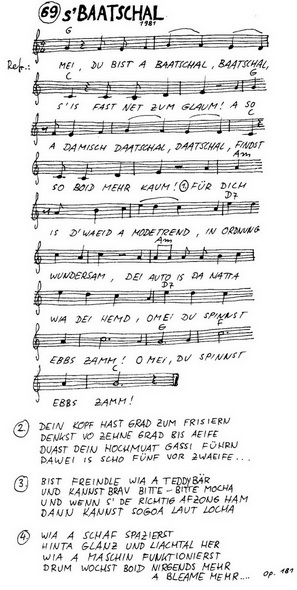 69 S'BAATSCHAL
1981
G
Refr.: MEI, DU BIST A BAATSCHAL, BAATSCHAL,
C G
S'IS FAST NET ZUM GLAUM! A SO
C
A DAMISCH DAATSCHAL, DAATSCHAL, FINDST
Am
SO BOID MEHR KAUM! ① FÜR DICH
D7
IS D'WAEID A MODETREND, IN ORDNUNG
Am
WUNDERSAM, DEI AUTO IS DA NATTA
D7
WIA DEI HEMD, O MEI DU SPINNST
G F
EBBS ZAMM! O MEI, DU SPINNST
C
EBBS ZAMM!
② DEIN KOPF HAST GRAD ZUM FRISIERN
DENKST VO ZEHNE GRAD BIS AEIFE
DUAST DEIN HOCHMUAT GASSI FÜHRN
DAWEI IS SCHO FÜNF VOR ZWAEIFE...
③ BIST FREINDLE WIA A TEDDYBÄR
UND KANNST BRAV BITTE-BITTE MOCHA
UND WENN S' DE RICHTIG AFZONG HAM
DANN KANNST SOGOA LAUT LOCHA
④ WIA A SCHAF SPAZIERST
HINTA GLANZ UND LIACHTAL HER
WIA A MASCHIN FUNKTIONIERST
DRUM WOCHST BOID NIRGENDS MEHR
A BLEAME MEHR.... op. 181